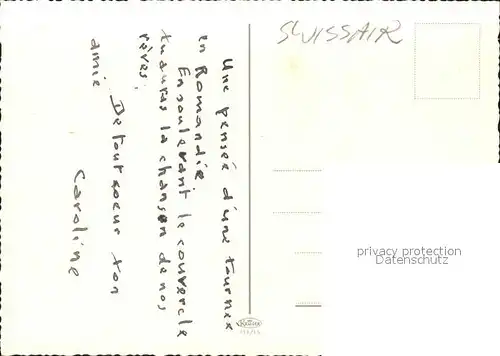 SWISSAIR
Une pensée d'une tournée
en Romandie.
En soulevant le couvercle
tu auras la chanson de nos
rêves.
De tout coeur ton
amie
Caroline
privacy protection
Datenschutz
Krüger